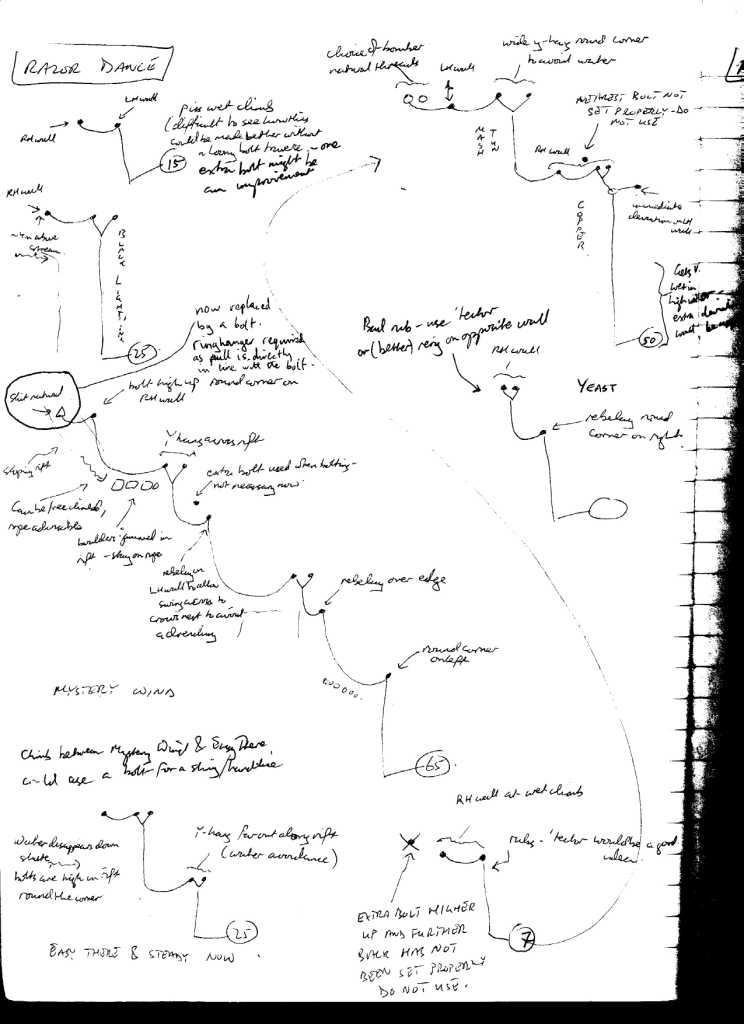 RAZOR DANCE
LH wall
RH wall
Piss wet climb
(difficult to see how this
could be made better without
a loony bolt traverse, - one
extra bolt might be
an improvement
15
RH wall
above
stream
BLACK LIGHTNING
25
now replaced
by a bolt.
ringhanger required
as pull is directly
in line with the bolt.
Shit natural
bolt high up round corner on
RH wall
Sloping rift
Y hang across rift
Can be free climbed,
rope advisable
boulders jammed in
rift - stay on rope
extra bolt used when bolting -
not necessary now.
rebelay on
LH wall to allow
swing across to
crows nest to avoid
a drenching
rebelay over edge
round corner
on left
65
MYSTERY WIND
Climb between Mystery Wind & Easy There,
could use a bolt for a sling/handline
Water disappears down
bolts are high in rift
round the corner
Y-hang far out along rift
(water avoidance)
25
EASY THERE & STEADY NOW.
choice of bomber
natural threads
LH wall
wide y-hang round corner
to avoid water
MASH
THN
NEAREST BOLT NOT
SET PROPERLY - DO
NOT USE
RH wall
COPPER
immediate
wall
Gets v.
wet in
high water
extra
50
Bad rub - use 'tector
or (better) rerig on opposite wall
RH wall
YEAST
rebelay round
corner on right
RH wall at wet climb
rubs - 'tector would be a good
EXTRA BOLT HIGHER
UP AND FURTHER
BACK HAS NOT
BEEN SET PROPERLY
DO NOT USE.
7